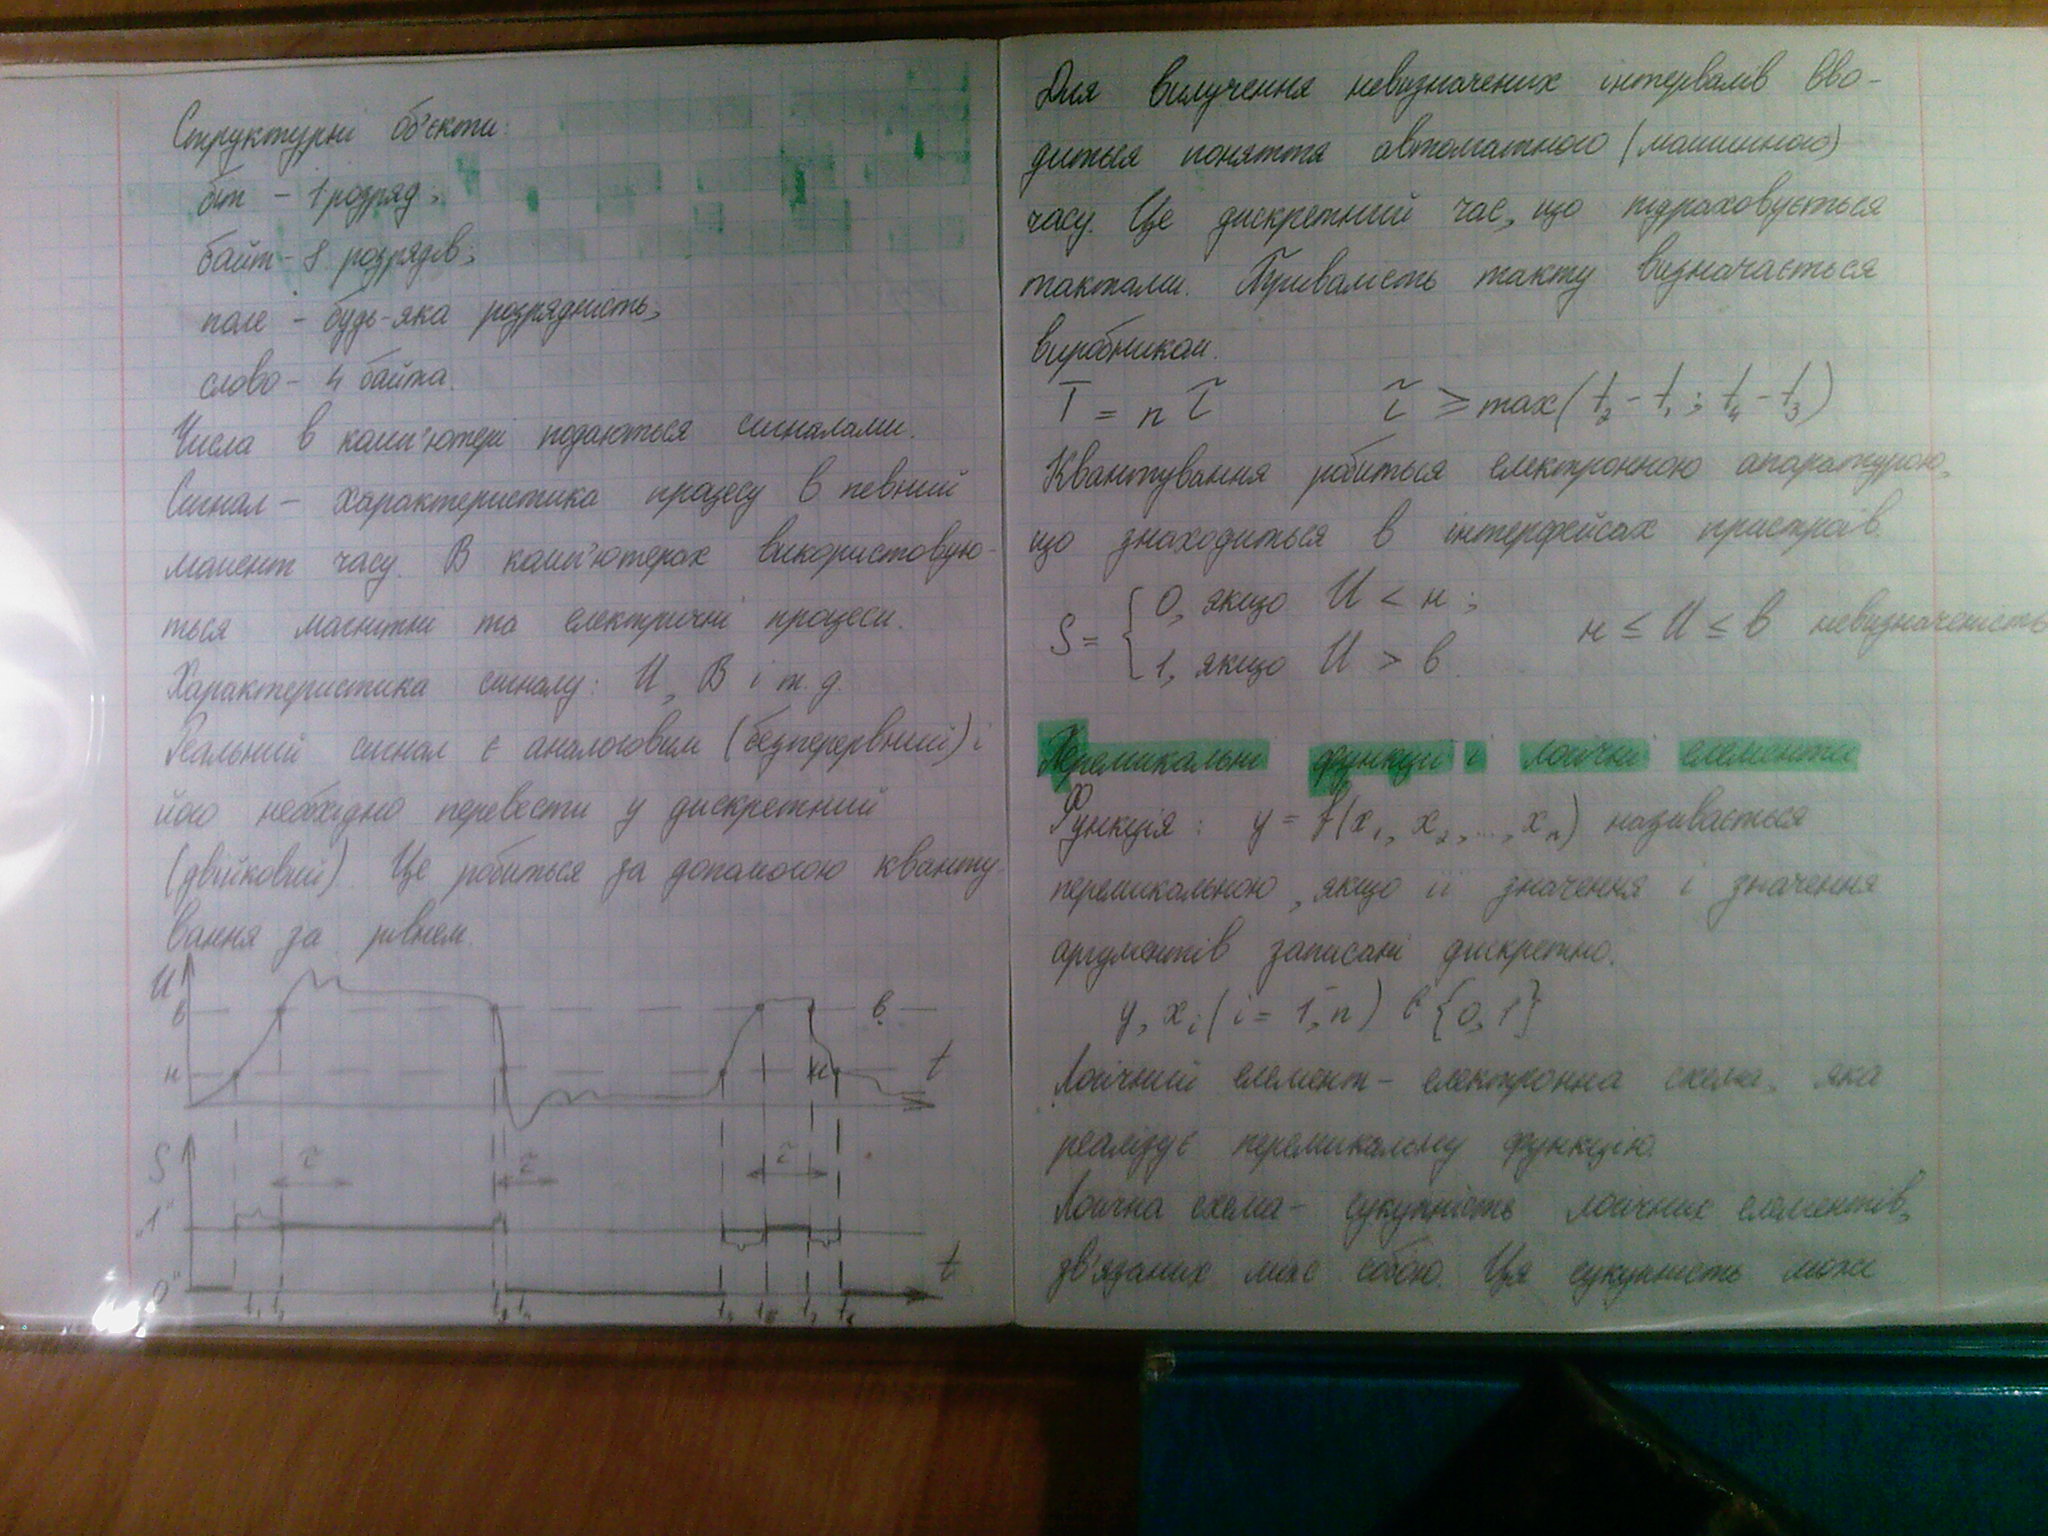 Структурні об'єкти:
біт - 1 розряд,
байт - 8 розрядів;
поле - будь-яка розрядність,
слово - 4 байта.
Числа в комп'ютері подаються сигналами.
Сигнал - характеристика процесу в певний
момент часу. В комп'ютерах використовую-
ться магнітні та електричні процеси.
Характеристика сигналу: U, B і т.д.
Реальний сигнал є аналоговим (безперервний) і
його необхідно перевести у дискретний
(двійковий). Це робиться за допомогою кванту-
вання за рівнем.
U
в в
н н t
S τ τ τ
"1"
"0" t
t₁ t₂ t₃ t₄
Для вилучення невизначених інтервалів вво-
диться поняття автоматного (машинного)
часу. Це дискретний час, що підраховується
тактами. Тривалість такту визначається
виробником.
T = n τ τ ≥ max(t₂ - t₁; t₄ - t₃)
Квантування робиться електронною апаратурою,
що знаходиться в інтерфейсах пристроїв.
S = { 0, якщо U < н;
1, якщо U > в. н ≤ U ≤ в невизначеність
Перемикальні функції і логічні елементи
Функція: y = f(x₁, x₂, ..., xₙ) називається
перемикальною, якщо її значення і значення
аргументів записані дискретно.
y, xᵢ (i = 1, n) є {0, 1}
Логічний елемент - електронна схема, яка
реалізує перемикальну функцію.
Логічна схема - сукупність логічних елементів,
зв'язаних між собою. Ця сукупність може